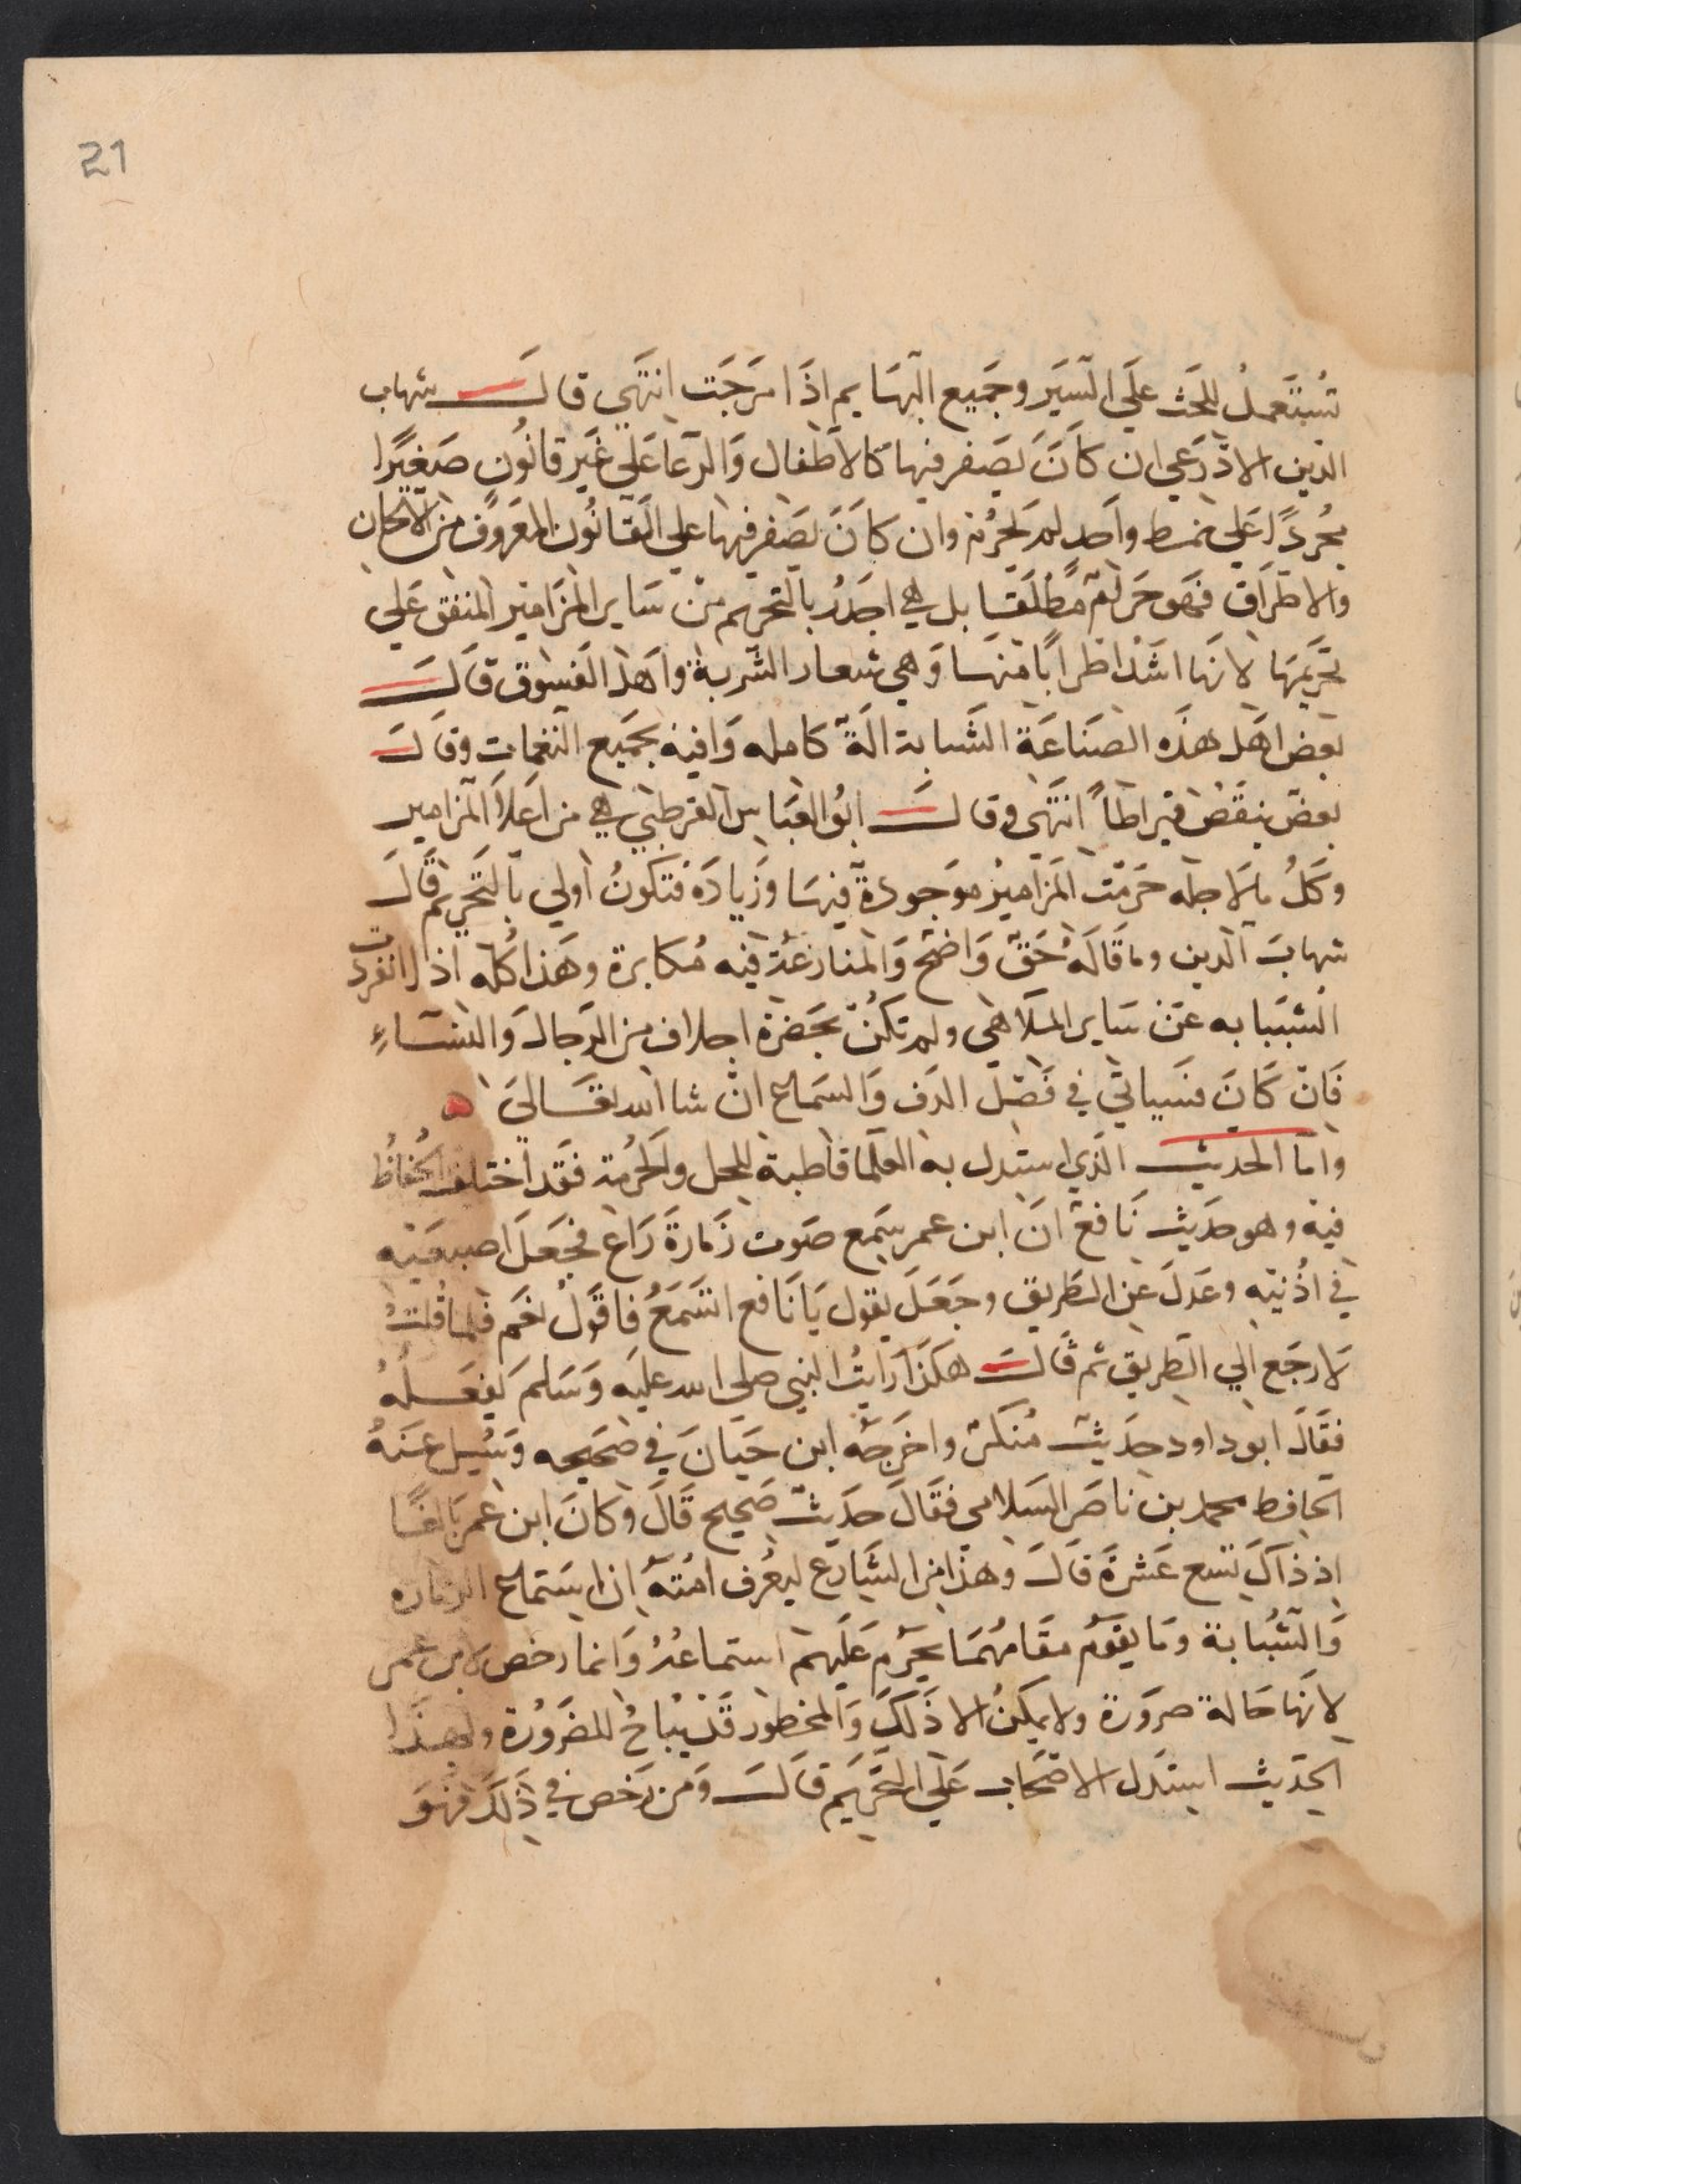 21
تُستَعملُ للحَث علَى السَير وجَميع البَهَايم اذَا سَرَحَت انتَهَي قالَ شهاب
الدين الاذرَعي ان كانَ يَصفر فيها كالاطفال وَالرعَا عَلى غَير قانُون صَغيرًا
مجُردًا عَلى نمط واحد لم تحرُم وان كانَ يصَفر فيهَا على القانُون المعَروُف من الالحَان
والاطرَاق فهَو حَرَامٌ مُطلَقًا بل هي اجدَرُ بالتحريم من سَاير المزَامير المتفق عَلى
تحَريمهَا لانهَا اشَدُ اطرابًا منهَا وَهي شعار الشَربة واهَل الفسوق قالَ
بعض اهَل هذَه الصنَاعَة الشَبابة الَةٌ كامله وَافيه بجَميع النغمات وقالَ
بعض ينقَصُ قيراطًا انتَهَى وقالَ ابُو العَباس القرطبي هي من اعَلا المزامير
وَكلُ مالاجله حَرَمَت المزامير مَوجودَة فيهَا وَزيادَة فتكونُ اولي بالتَحريم قالَ
شهابَ الدين وما قَالَهُ حَقٌ وَاضحٌ وَالمنازعَة فيه مُكابرة وهَذا كلُه اذا انفَردَت
الشَبابه عَن سَاير المَلاهي ولم تكنُ بحَضرة اجلاف من الرجال وَالنسَاءِ
فَان كَانَ فسَياتي في فَصل الدف وَالسَماع ان شا الله تعَالى ه
وامَا الحديث الذي استدل به العلما قاطبة للحل والحُرمة فقَد اختلف الحُفاظُ
فيه وهو حَديث نَافع انَ ابن عمر سَمع صَوت زَمارَةَ رَاع فجَعلَ اصبعَيه
في اذُنَيه وعَدلَ عَن الطَريق وجَعَلَ يقول يَا نَافع اتسَمَعُ فاقَولُ نعَم فلما قلتُ
لا رجَع الي الطَريق ثم قالَ هكَذا رَايتُ النبي صلى الله عليه وَسَلم يفعَلُهُ
فقَالَ ابو داود حَديث مُنكَر واخرَجَه ابن حَبانَ في صَحيحه وَسُيل عَنهُ
الحافط محمد بن ناصَر السَلامى فقَالَ حَديث صَحيح قَالَ وكانَ ابن عمَر بَالغًا
اذ ذاكَ تسَع عَشرَة قالَ وهَذا من الشَارع ليعُرف امتَه ان استماع الزماره
وَالشَبابة وَما يقوَمُ مقَامهُمَا يَحرَم عَليهمُ استماعُهُ وَانما رخص لابن عُمر
لانهَا حَالة ضرَورة ولا يمكنُ الا ذَلكَ وَالمحَظور قَد يُباحُ للضَرورُة ولهذَا
الحَديث استَدل الاصحَاب عَلى التحَريَم قالَ وَمن رَخص في ذَلكَ فهُوَ